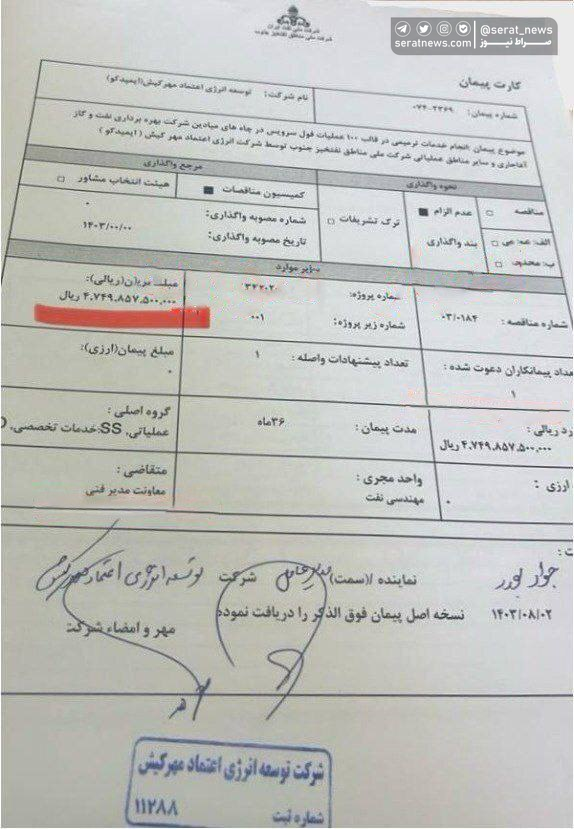 @serat_news
سراط نیوز
seratnews.com
شرکت ملی نفت ایران
شرکت ملی مناطق نفتخیز جنوب
کارت پیمان
شماره پیمان: ۰۷۴-۲۳۶۹
نام شرکت: توسعه انرژی اعتماد مهرکیش(ایمیدکو)
موضوع پیمان: انجام خدمات ترمیمی در قالب ۱۰۰ عملیات فول سرویس در چاه های میادین شرکت بهره برداری نفت و گاز
آغاجاری و سایر مناطق عملیاتی شرکت ملی مناطق نفتخیز جنوب توسط شرکت انرژی اعتماد مهر کیش ( ایمیدکو )
نحوه واگذاری
مرجع واگذاری
مناقصه
عدم الزام
ترک تشریفات
کمیسیون مناقصات
هیئت انتخاب مشاور
الف: عمومی
بند واگذاری
شماره مصوبه واگذاری: ۰
ب: محدود
تاریخ مصوبه واگذاری: ۱۴۰۳/۰۰/۰۰
سایر موارد
شماره مناقصه : ۰۳/۰۱۸۴
شماره پروژه:
شماره زیر پروژه: ۰۰۱
مبلغ پیمان(ریالی):
۴،۷۴۹،۸۵۷،۵۰۰،۰۰۰ ریال
تعداد پیمانکاران دعوت شده :
۱
تعداد پیشنهادات واصله : ۱
مبلغ پیمان(ارزی):
۰
رد ریالی:
۴،۷۴۹،۸۵۷،۵۰۰،۰۰۰ ریال
مدت پیمان : ۳۶ماه
گروه اصلی :
عملیاتی, SS:خدمات تخصصی,
ارزی :
۰
واحد مجری :
مهندسی نفت
متقاضی :
معاونت مدیر فنی
نماینده /(سمت) مدیرعامل شرکت توسعه انرژی اعتماد مهرکیش
۱۴۰۳/۰۸/۰۲ نسخه اصل پیمان فوق الذکر را دریافت نموده
مهر و امضاء شرکت
شرکت توسعه انرژی اعتماد مهرکیش
۱۱۲۸۸
شماره ثبت